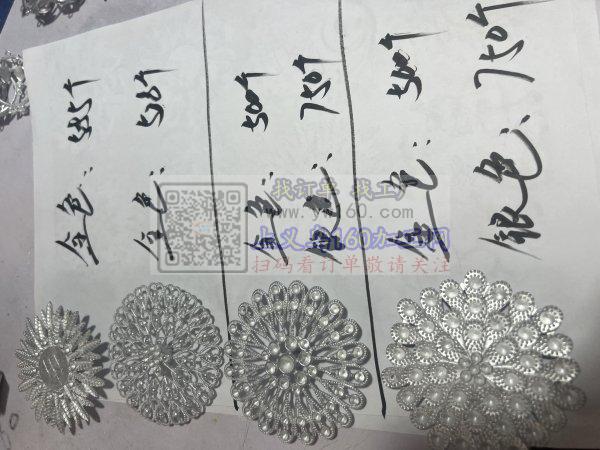 金色：585个
金色：585个
金色：500个
银色：750个
金色：500个
银色：750个
找订单 找工厂
www.yw160.com
上义乌160加工网
扫码看订单敬请关注